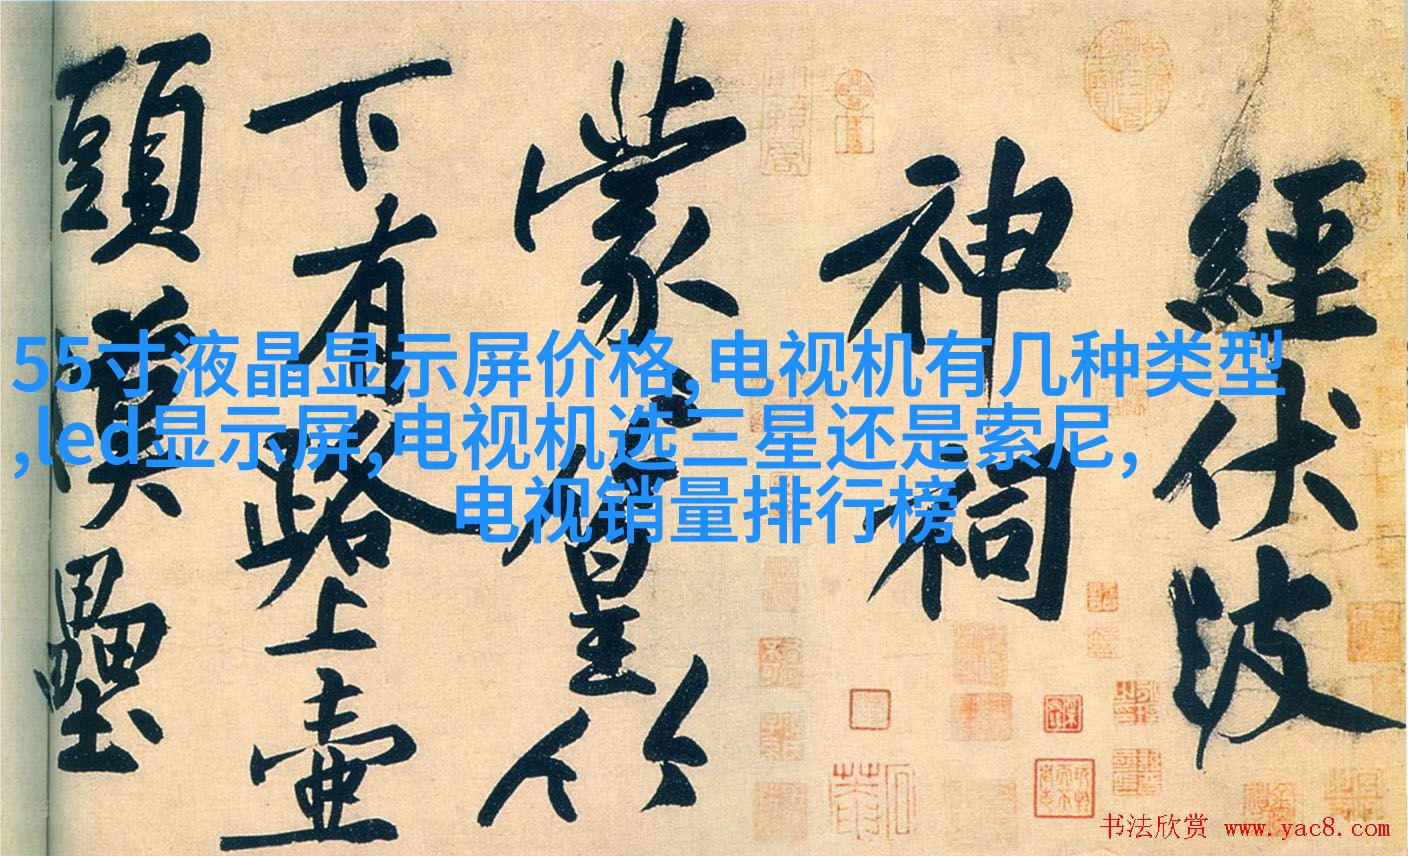 經伏波
神祠
蒙々篁竹
下有路上壺
頭漢壘
55寸液晶显示屏价格,电视机有几种类型
,led显示屏,电视机选三星还是索尼,
电视销量排行榜
书法欣赏 www.yac8.com